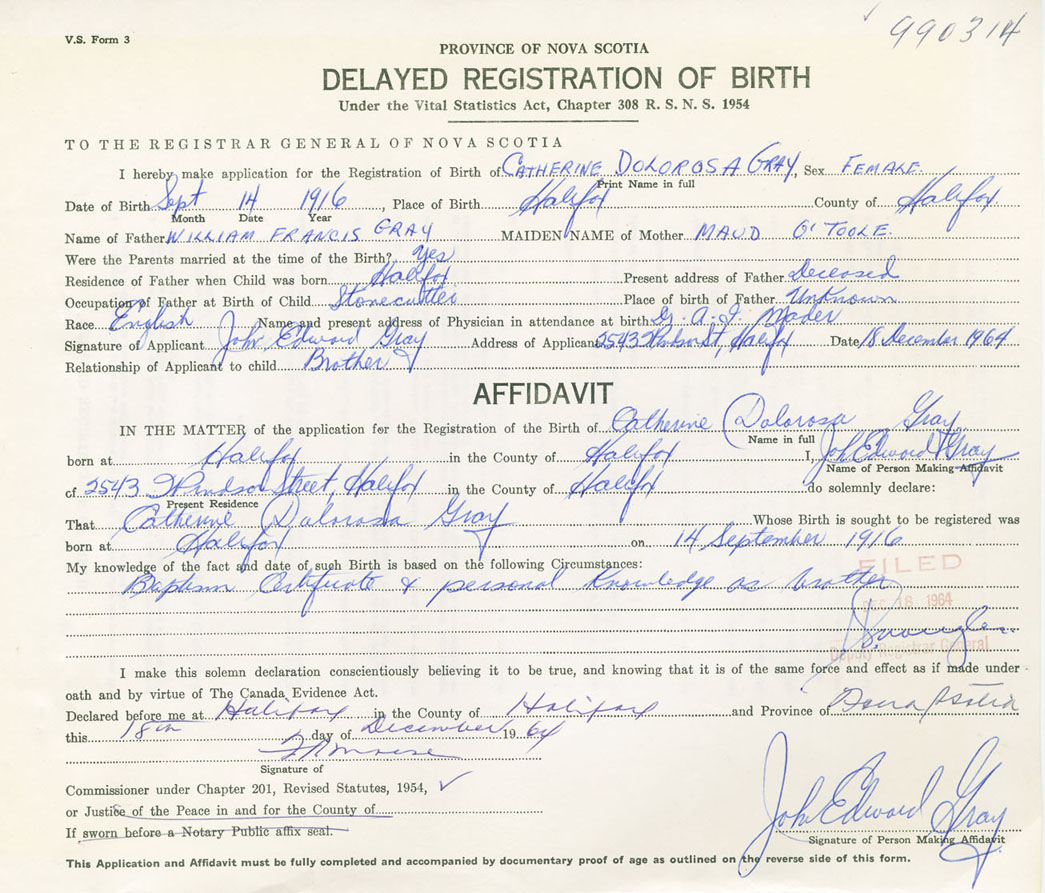 990314
V.S. Form 3
PROVINCE OF NOVA SCOTIA
DELAYED REGISTRATION OF BIRTH
Under the Vital Statistics Act, Chapter 308 R. S. N. S. 1954
TO THE REGISTRAR GENERAL OF NOVA SCOTIA
I hereby make application for the Registration of Birth of CATHERINE DOLOROSA GRAY, Sex FEMALE.
Print Name in full
Date of Birth Sept 14 1916, Place of Birth Halifax County of Halifax.
Month Date Year
Name of Father WILLIAM FRANCIS GRAY MAIDEN NAME of Mother MAUD O'TOOLE.
Were the Parents married at the time of the Birth? Yes
Residence of Father when Child was born Halifax Present address of Father Deceased
Occupation of Father at Birth of Child Stonecutter Place of birth of Father Unknown
Race English Name and present address of Physician in attendance at birth G. A. I. Mader
Signature of Applicant John Edward Gray Address of Applicant 2543 Windsor St, Halifax Date 18 December 1964
Relationship of Applicant to child Brother
AFFIDAVIT
IN THE MATTER of the application for the Registration of the Birth of Catherine Dolorosa Gray
Name in full
born at Halifax in the County of Halifax I, John Edward Gray
Name of Person Making Affidavit
of 2543 Windsor Street, Halifax in the County of Halifax do solemnly declare:
Present Residence
That Catherine Dalorosa Gray Whose Birth is sought to be registered was
born at Halifax on 14 September 1916
My knowledge of the fact and date of such Birth is based on the following Circumstances:
Baptism Certificate & personal knowledge as brother
FILED
DEC 18 1964
Deputy Registrar General
I make this solemn declaration conscientiously believing it to be true, and knowing that it is of the same force and effect as if made under
oath and by virtue of The Canada Evidence Act.
Declared before me at Halifax in the County of Halifax and Province of Nova Scotia
this 18th day of December 1964
Signature of
Commissioner under Chapter 201, Revised Statutes, 1954, ✓
or Justice of the Peace in and for the County of
If sworn before a Notary Public affix seal.
John Edward Gray
Signature of Person Making Affidavit
This Application and Affidavit must be fully completed and accompanied by documentary proof of age as outlined on the reverse side of this form.